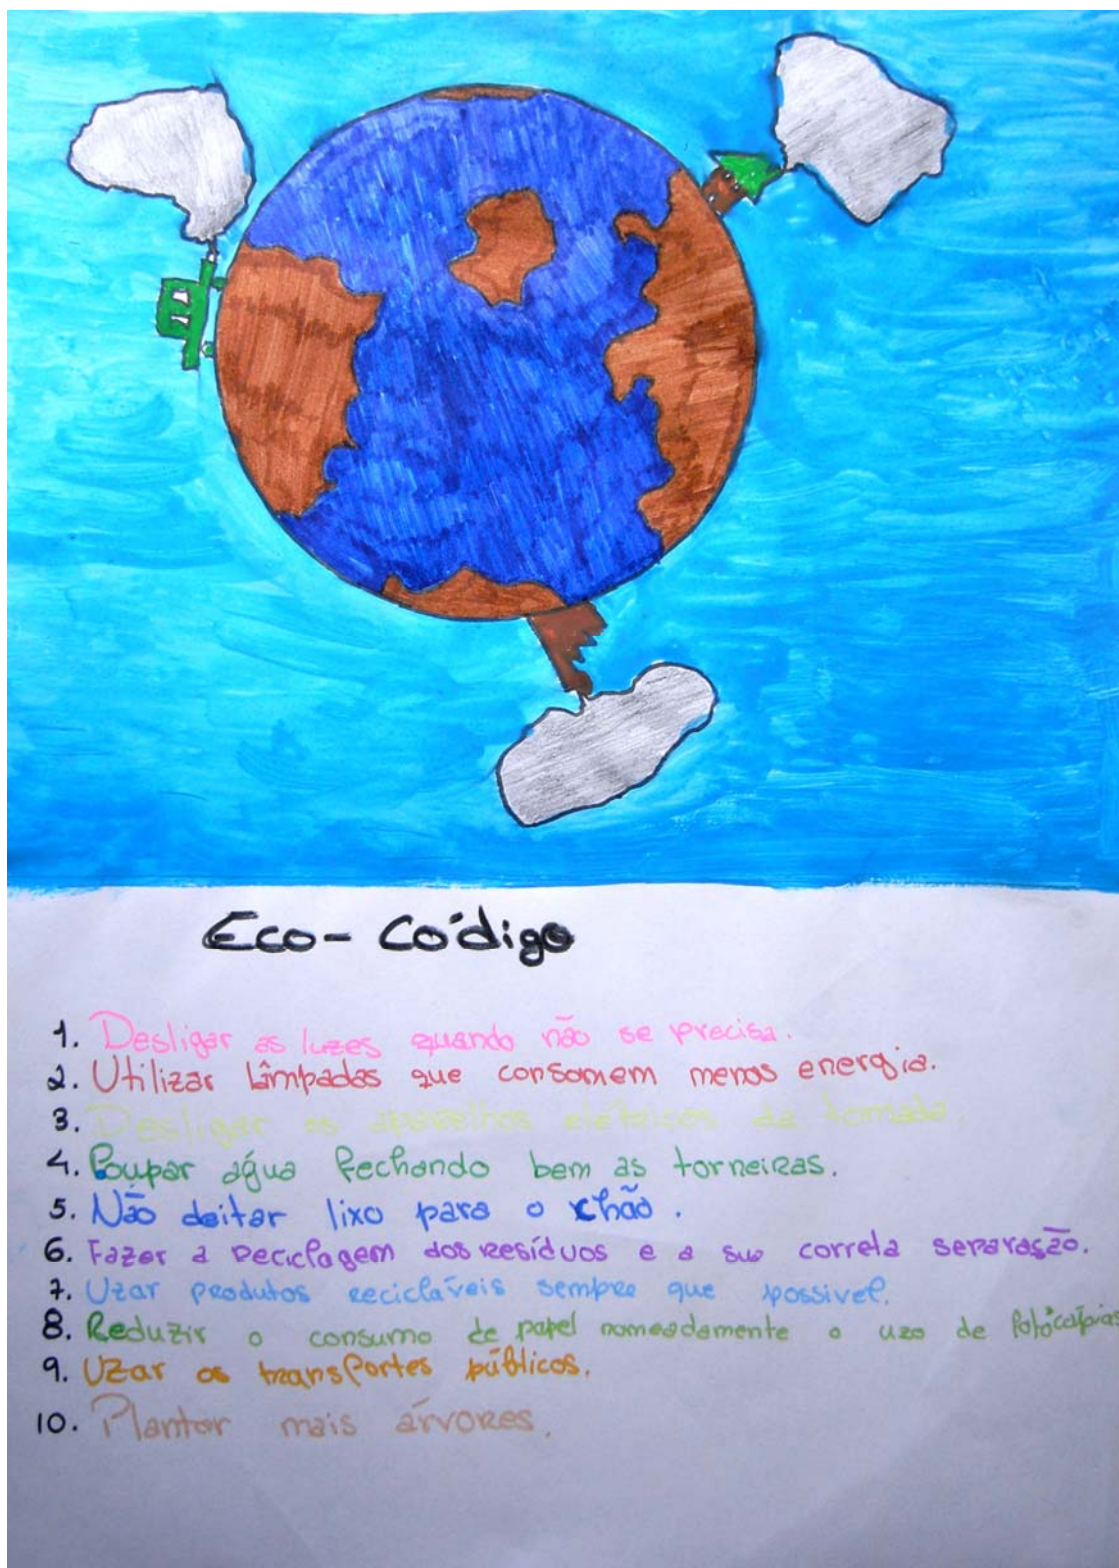 Eco-Código
1. Desligar as luzes quando não se precisa.
2. Utilizar lâmpadas que consomem menos energia.
3. Desligar os aparelhos elétricos da tomada.
4. Poupar água fechando bem as torneiras.
5. Não deitar lixo para o chão.
6. Fazer a reciclagem dos resíduos e a sua correta separação.
7. Uzar produtos recicláveis sempre que possivel.
8. Reduzir o consumo de papel nomeadamente o uzo de fotócópias
9. Uzar os transportes públicos.
10. Plantar mais árvores.